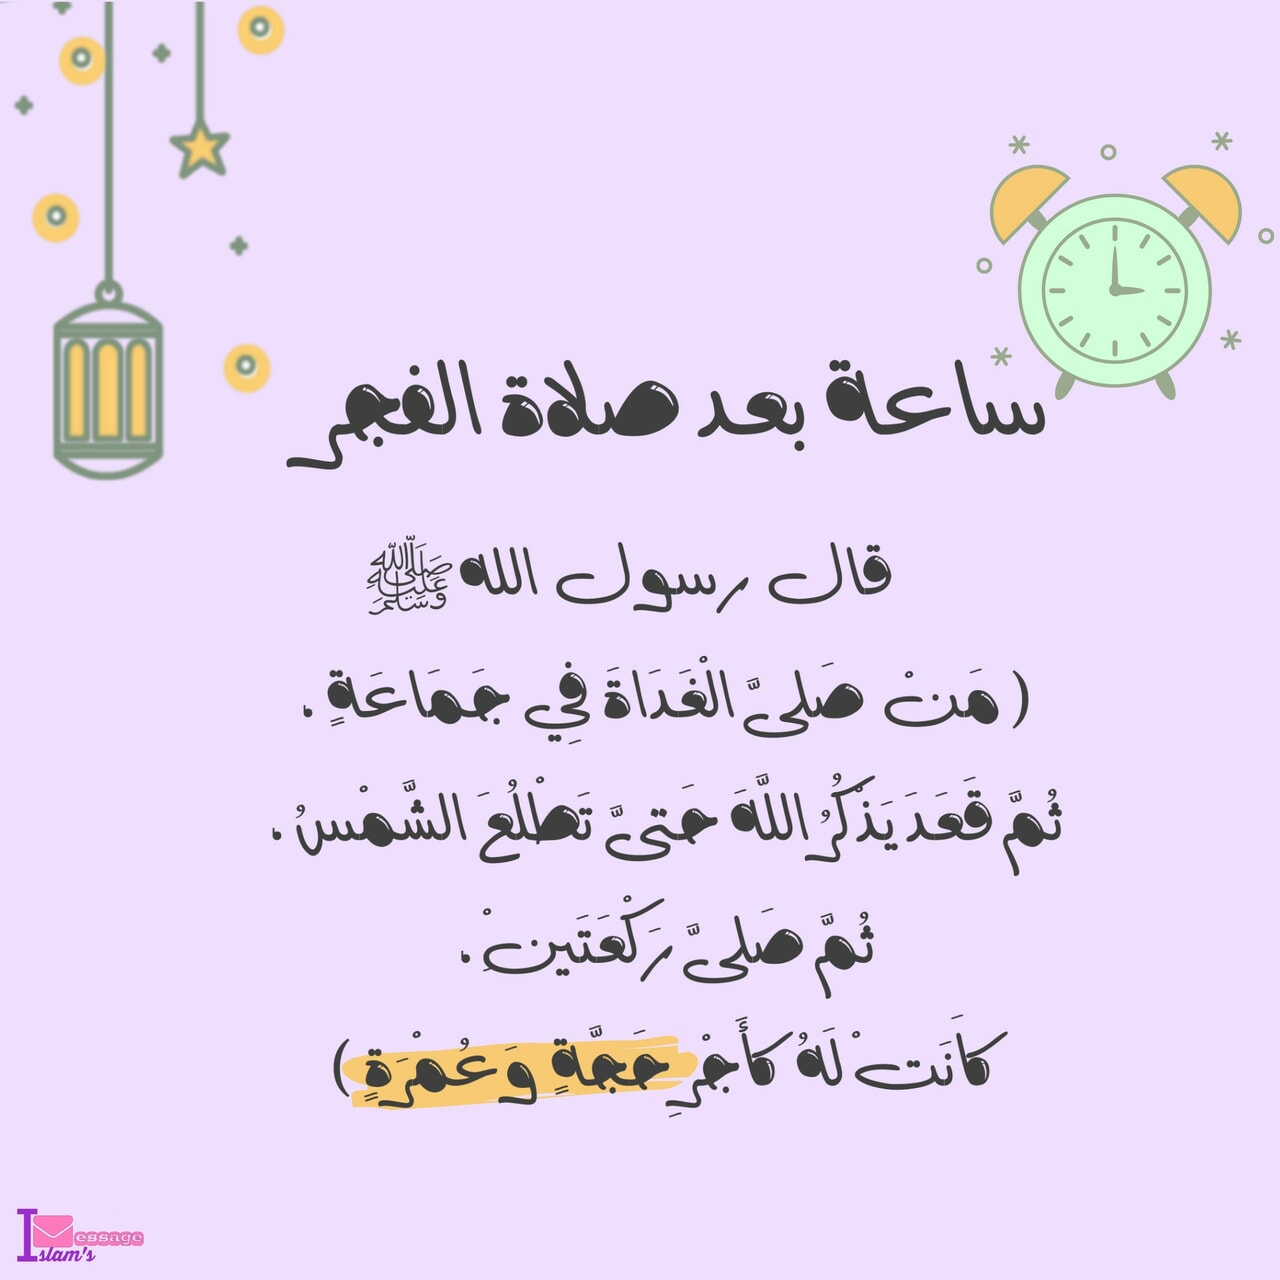 ساعة بعد صلاة الفجر
قال رسول الله ﷺ
( مَنْ صَلىَّ الْغَدَاةَ فِي جَمَاعَةٍ .
ثُمَّ قَعَدَ يَذْكُرُ اللَّهَ حَتىَّ تَطْلُعَ الشَّمْسُ .
ثُمَّ صَلىَّ رَكْعَتَينِْ .
كاَنَتْ لَهُ كأَجْرِ حَجَّةٍ وَعُمْرَةٍ )
Islam's Message